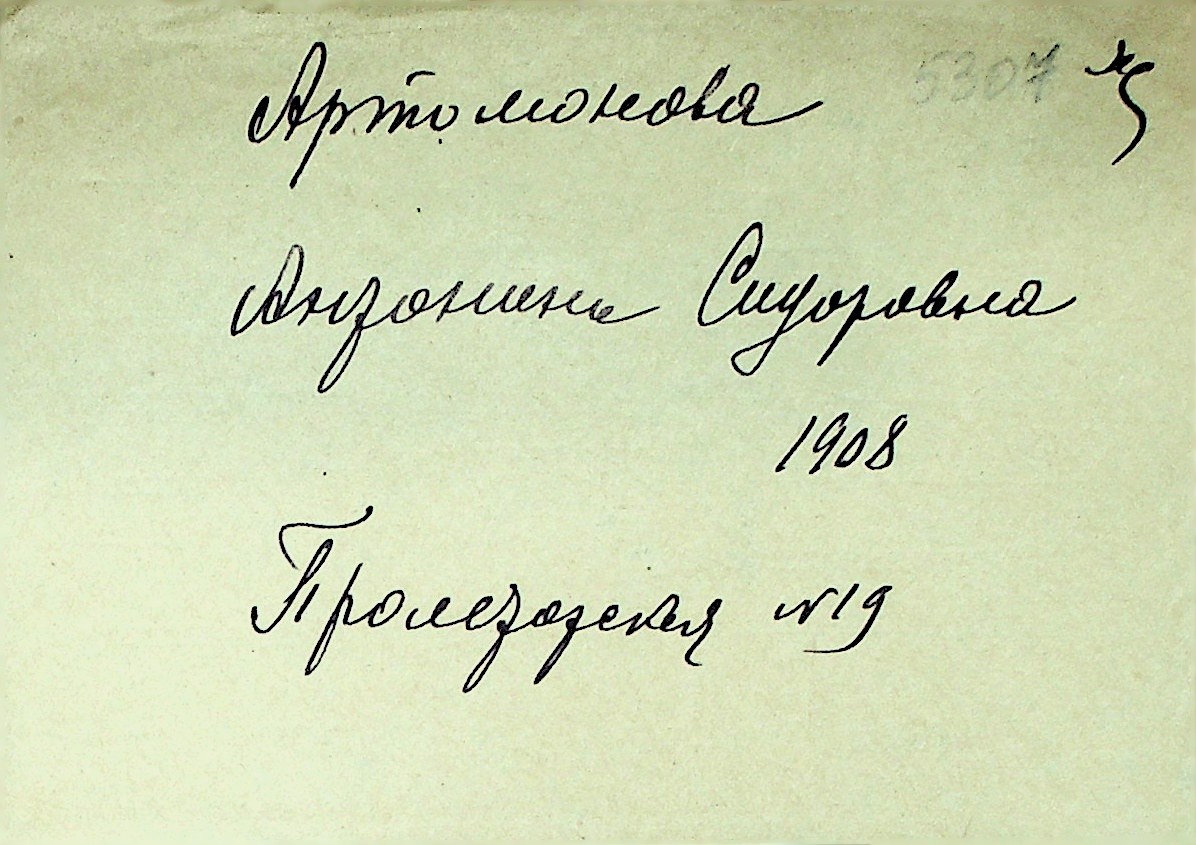 5307
Артомонова
Антонина Сидоровна
1908
Пролетарская №19